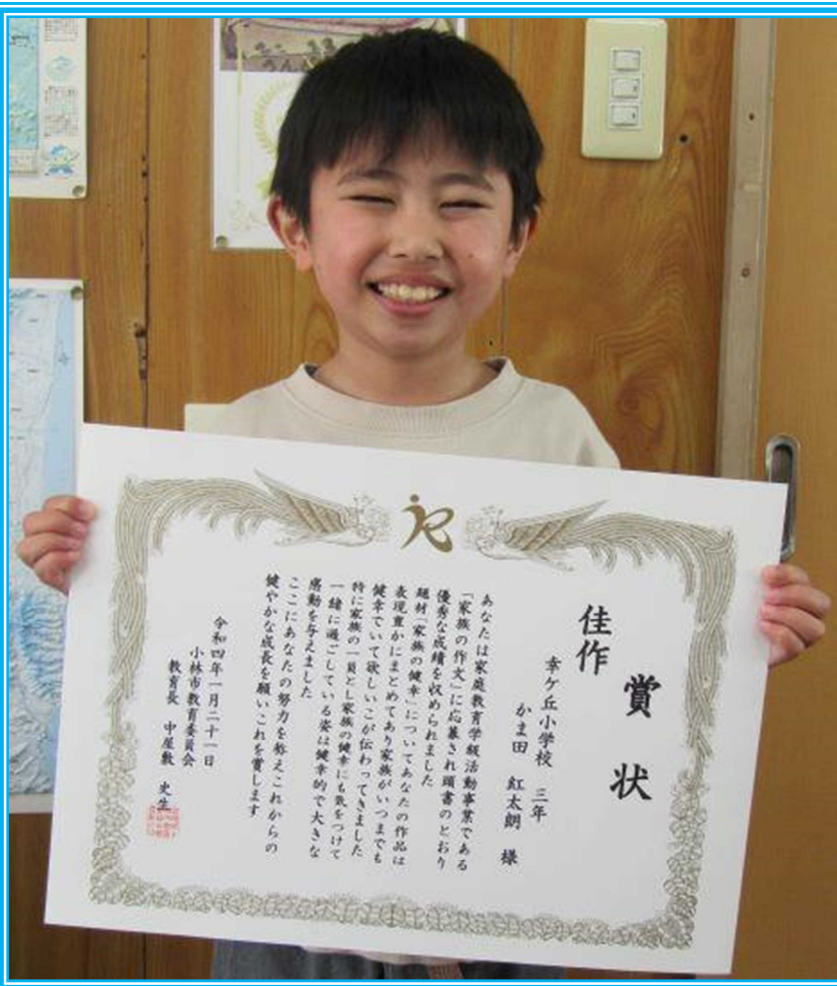 賞状
佳作
幸ケ丘小学校 三年
かま田 紅太朗 様
あなたは家庭教育学級活動事業である
「家族の作文」に応募され頭書のとおり
優秀な成績を収められました
題材「家族の健幸」についてあなたの作品は
表現豊かにまとめてあり家族がいつまでも
健幸でいて欲しいこが伝わってきました
特に家族の一員とし家族の健幸にも気をつけて
一緒に過ごしている姿は健幸的で大きな
感動を与えました
ここにあなたの努力を称えこれからの
健やかな成長を願いこれを賞します
令和四年一月二十一日
小林市教育委員会
教育長 中屋敷 史生